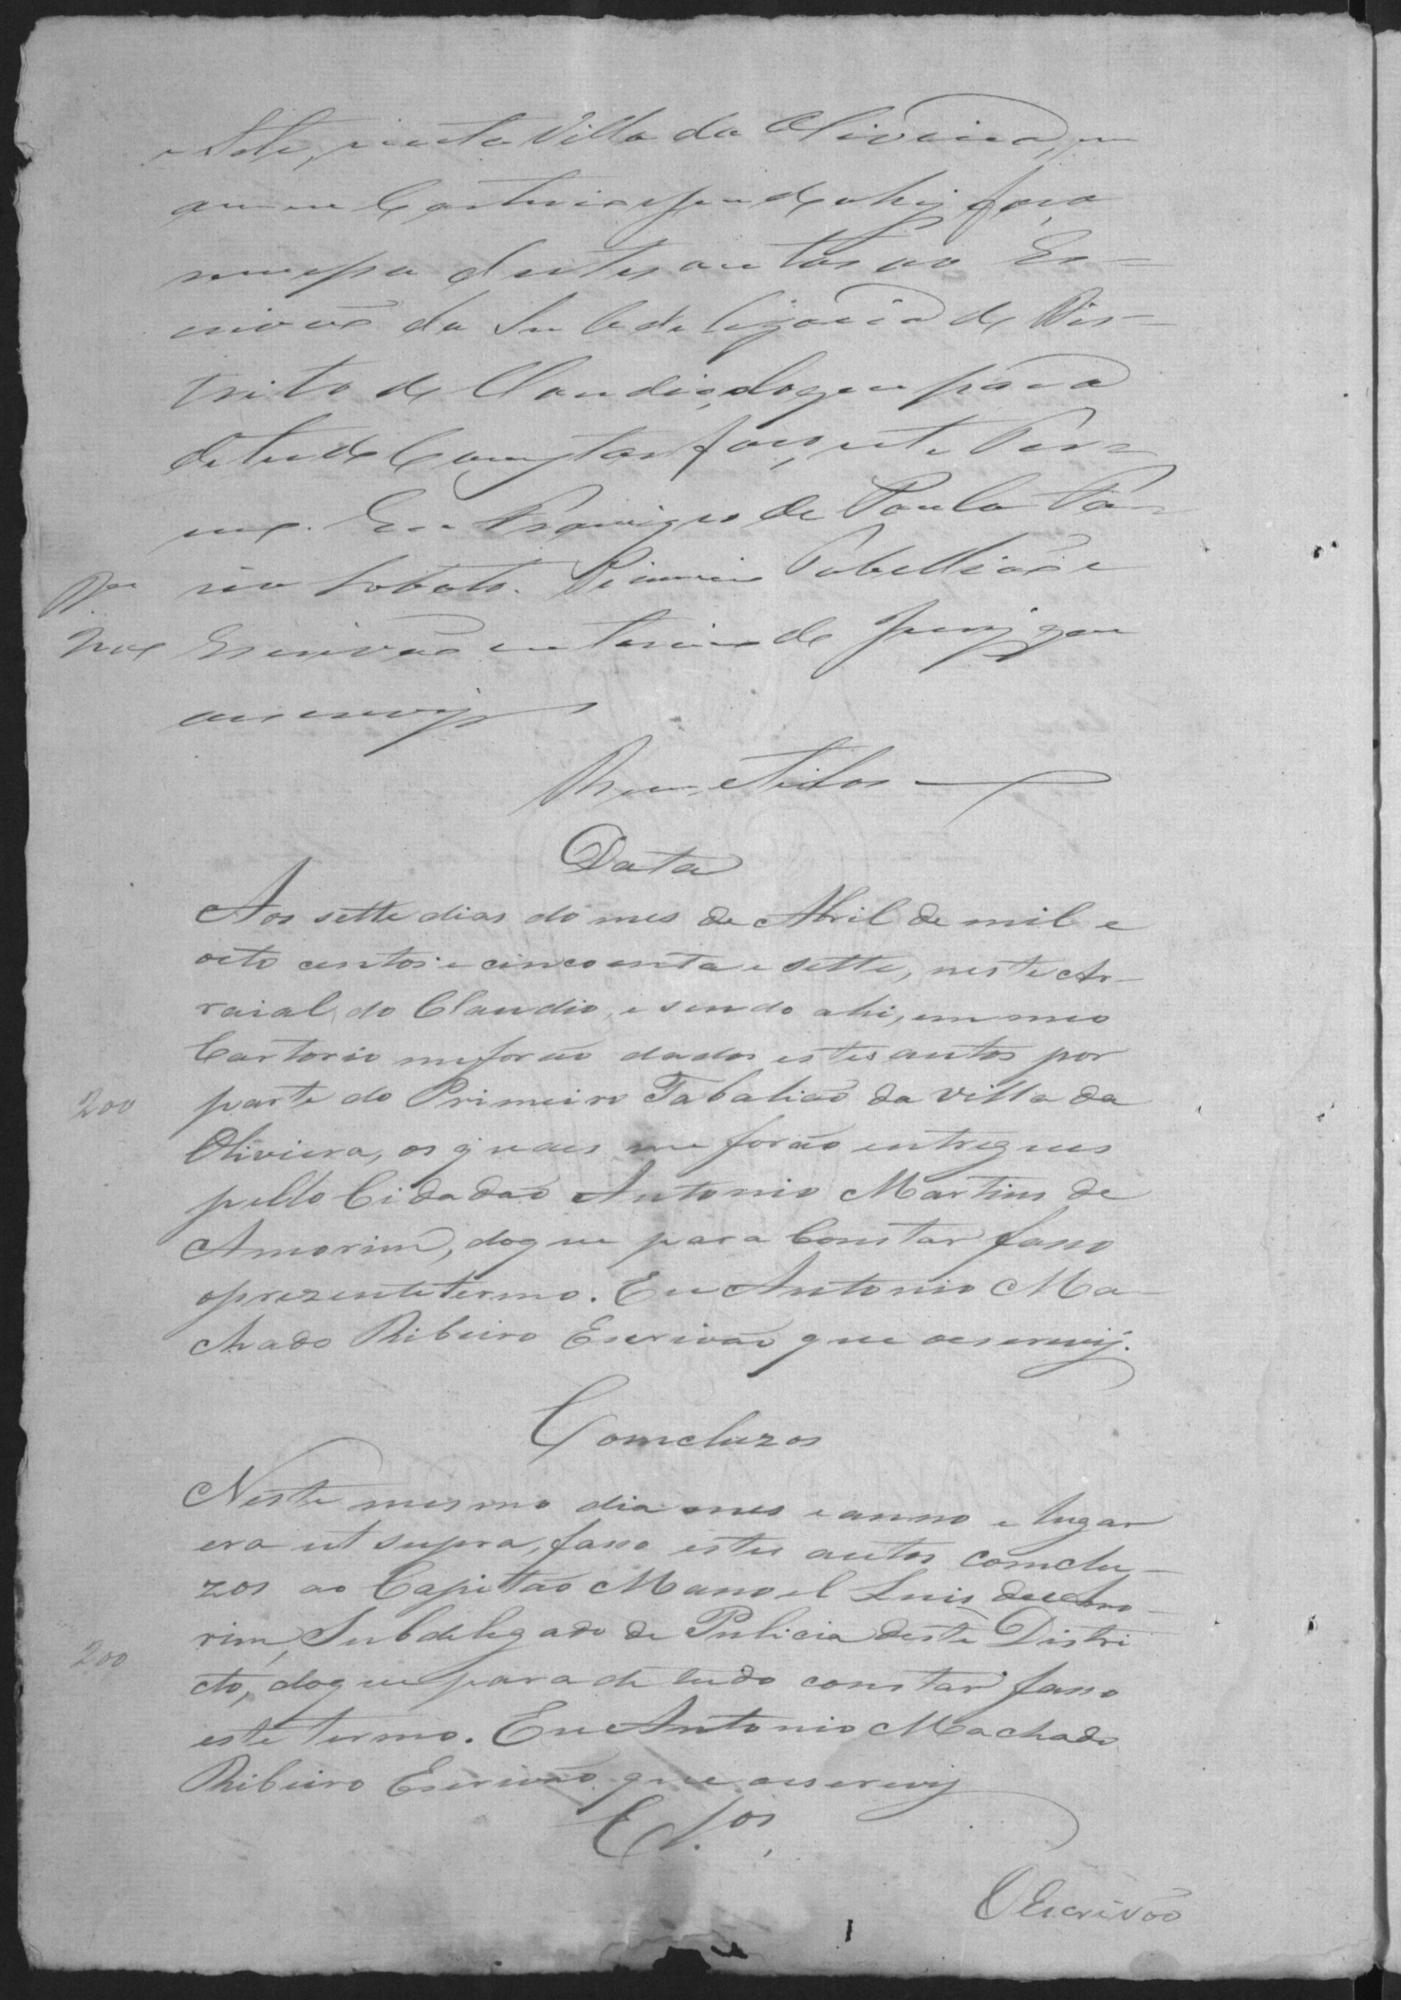 e Sete, nesta Villa da Oliveira, em
meu Cartorio, sendo ahi faço
remessa destes autos ao Es-
crivão da Subdelegacia do Dis-
tricto do Claudio, do que para
de tudo Constar faço este Ter-
mo. Eu Francisco de Paula
Lobato Primeiro Tabellião e
Escrivão interino do Jury que
o escrevy
Remetidos
Data
Aos sette dias do mes de Abril de mil e
oito centos e cincoenta e sette, neste Ar-
raial do Claudio, e sendo ahi, em meo
Cartorio me forão dados estes autos por
200 parte do Primeiro Tabalião da Villa da
Oliviera, os quaes me forão entregues
pello Cidadão Antonio Martins de
Amorim, do que para Constar fasso
o prezente termo. Eu Antonio Ma-
chado Ribeiro Escrivão que o escrevij.
Comcluzos
Neste mesmo dia mes e anno e lugar
era ut supra, fasso estes autos comclu-
zos ao Capitão Manoel Luis de Amo-
rim, Subdelegado de Pulicia deste Distri
200 cto, do que para de tudo constar fasso
este termo. Eu Antonio Machado
Ribeiro Escrivão que o escrevij
Cl.ºˢ,
O Escrivão